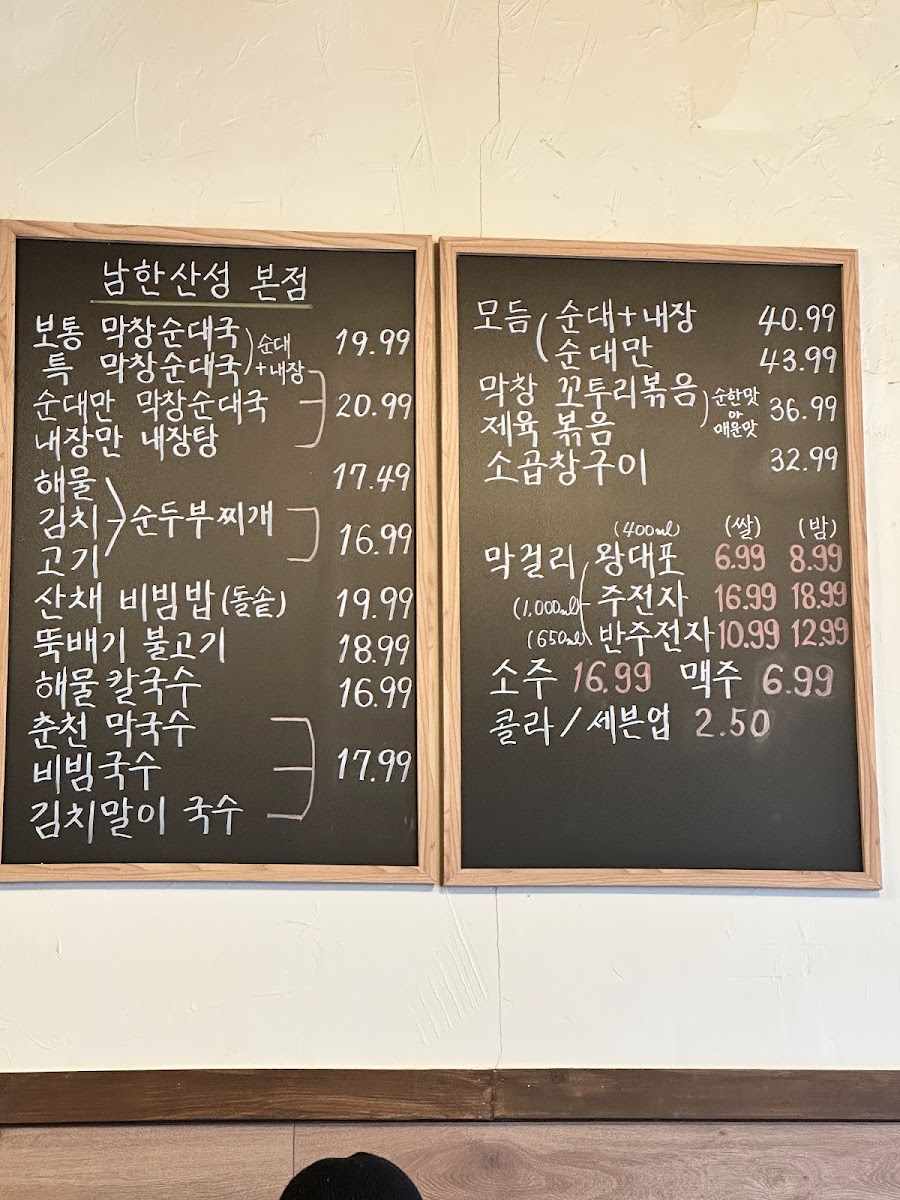 남한산성 본점
보통 막창순대국 19.99
특 막창순대국
순대
+내장
순대만 막창순대국 20.99
내장만 내장탕
해물 17.49
김치 순두부찌개 16.99
고기
산채 비빔밥 (돌솥) 19.99
뚝배기 불고기 18.99
해물 칼국수 16.99
춘천 막국수
비빔국수 17.99
김치말이 국수
모듬 순대+내장 40.99
순대만 43.99
막창 꼬투리볶음 36.99
제육 볶음
순한맛
or
매운맛
소곱창구이 32.99
(400ml) (쌀) (밤)
막걸리 왕대포 6.99 8.99
(1,000ml) 주전자 16.99 18.99
(650ml) 반주전자 10.99 12.99
소주 16.99 맥주 6.99
콜라/세븐업 2.50